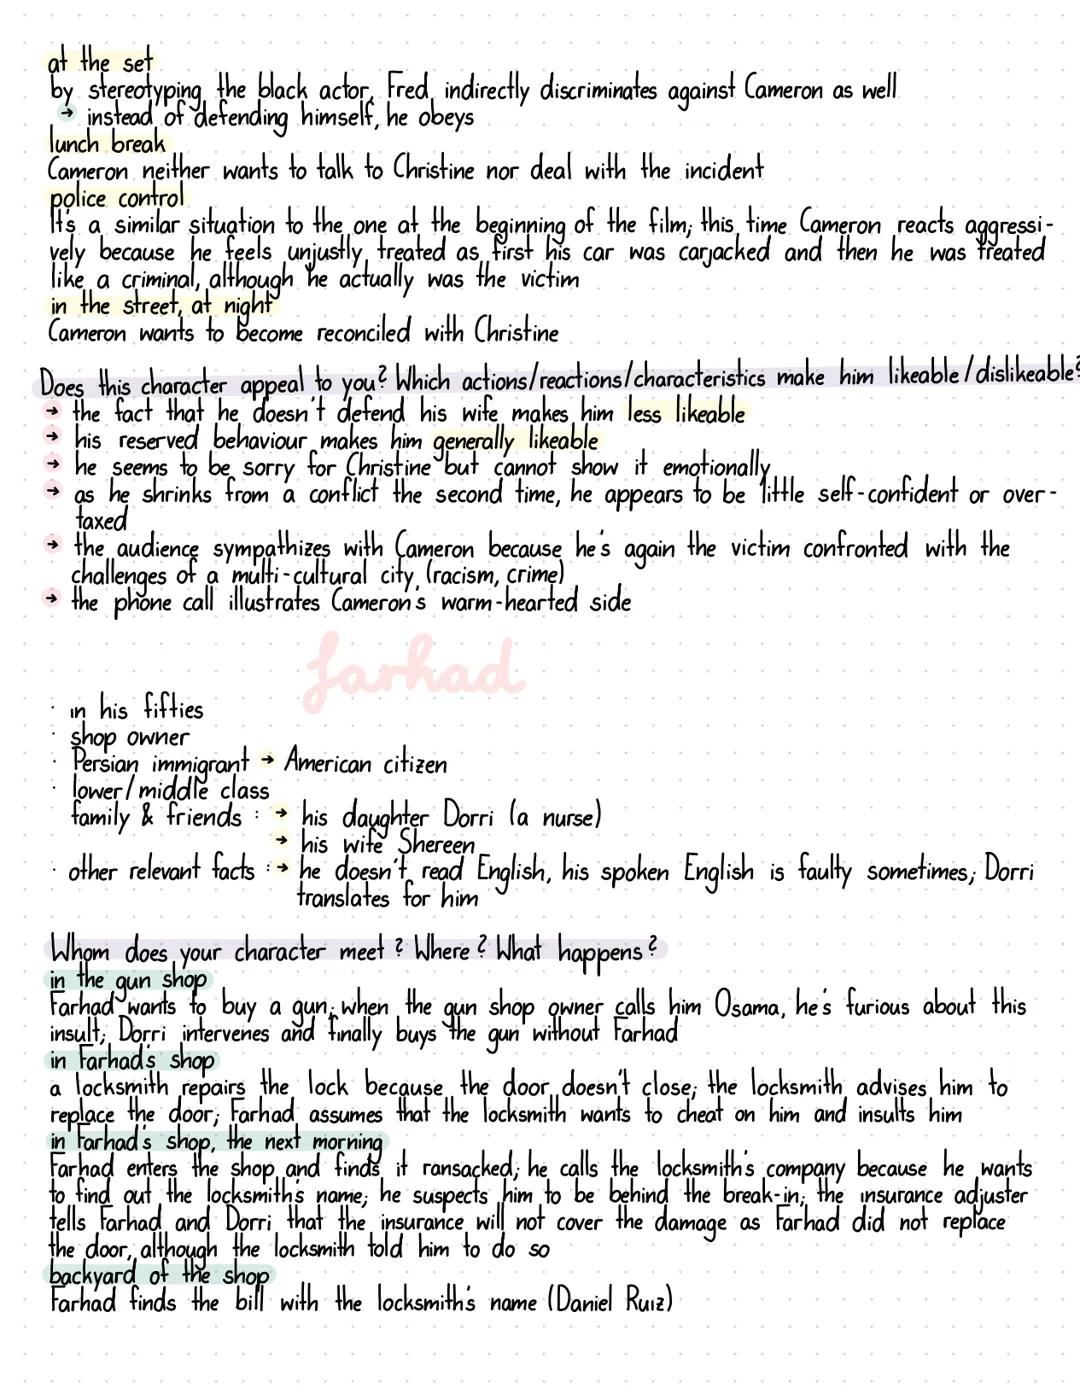 at the set
by stereotyping the black actor, Fred indirectly discriminates against Cameron as well
→ instead of defending himself, he obeys
lunch break
Cameron neither wants to talk to Christine nor deal with the incident
police control
It's a similar situation to the one at the beginning of the film; this time Cameron reacts aggressi-
vely because he feels unjustly treated as first his car was carjacked and then he was treated
like a criminal, although he actually was the victim
in the street, at night
Cameron wants to become reconciled with Christine
Does this character appeal to you? Which actions/reactions/characteristics make him likeable/dislikeable?
→ the fact that he doesn't defend his wife makes him less likeable
→ his reserved behaviour makes him generally likeable
→ he seems to be sorry for Christine but cannot show it emotionally
→ as he shrinks from a conflict the second time, he appears to be little self-confident or over-
taxed
→ the audience sympathizes with Cameron because he's again the victim confronted with the
challenges of a multi-cultural city (racism, crime)
→ the phone call illustrates Cameron's warm-hearted side
farhad
· in his fifties
· shop owner
· Persian immigrant → American citizen
· lower/middle class
family & friends : → his daughter Dorri (a nurse)
→ his wife Shereen
· other relevant facts : → he doesn't read English, his spoken English is faulty sometimes; Dorri
translates for him
Whom does your character meet? Where? What happens?
in the gun shop
Farhad wants to buy a gun; when the gun shop owner calls him Osama, he's furious about this
insult; Dorri intervenes and finally buys the gun without Farhad
in Farhad's shop
a locksmith repairs the lock because the door doesn't close; the locksmith advises him to
replace the door; Farhad assumes that the locksmith wants to cheat on him and insults him
in Farhad's shop, the next morning
Farhad enters the shop and finds it ransacked; he calls the locksmith's company because he wants
to find out the locksmith's name; he suspects him to be behind the break-in; the insurance adjuster
tells Farhad and Dorri that the insurance will not cover the damage as Farhad did not replace
the door, although the locksmith told him to do so
backyard of the shop
Farhad finds the bill with the locksmith's name (Daniel Ruiz)